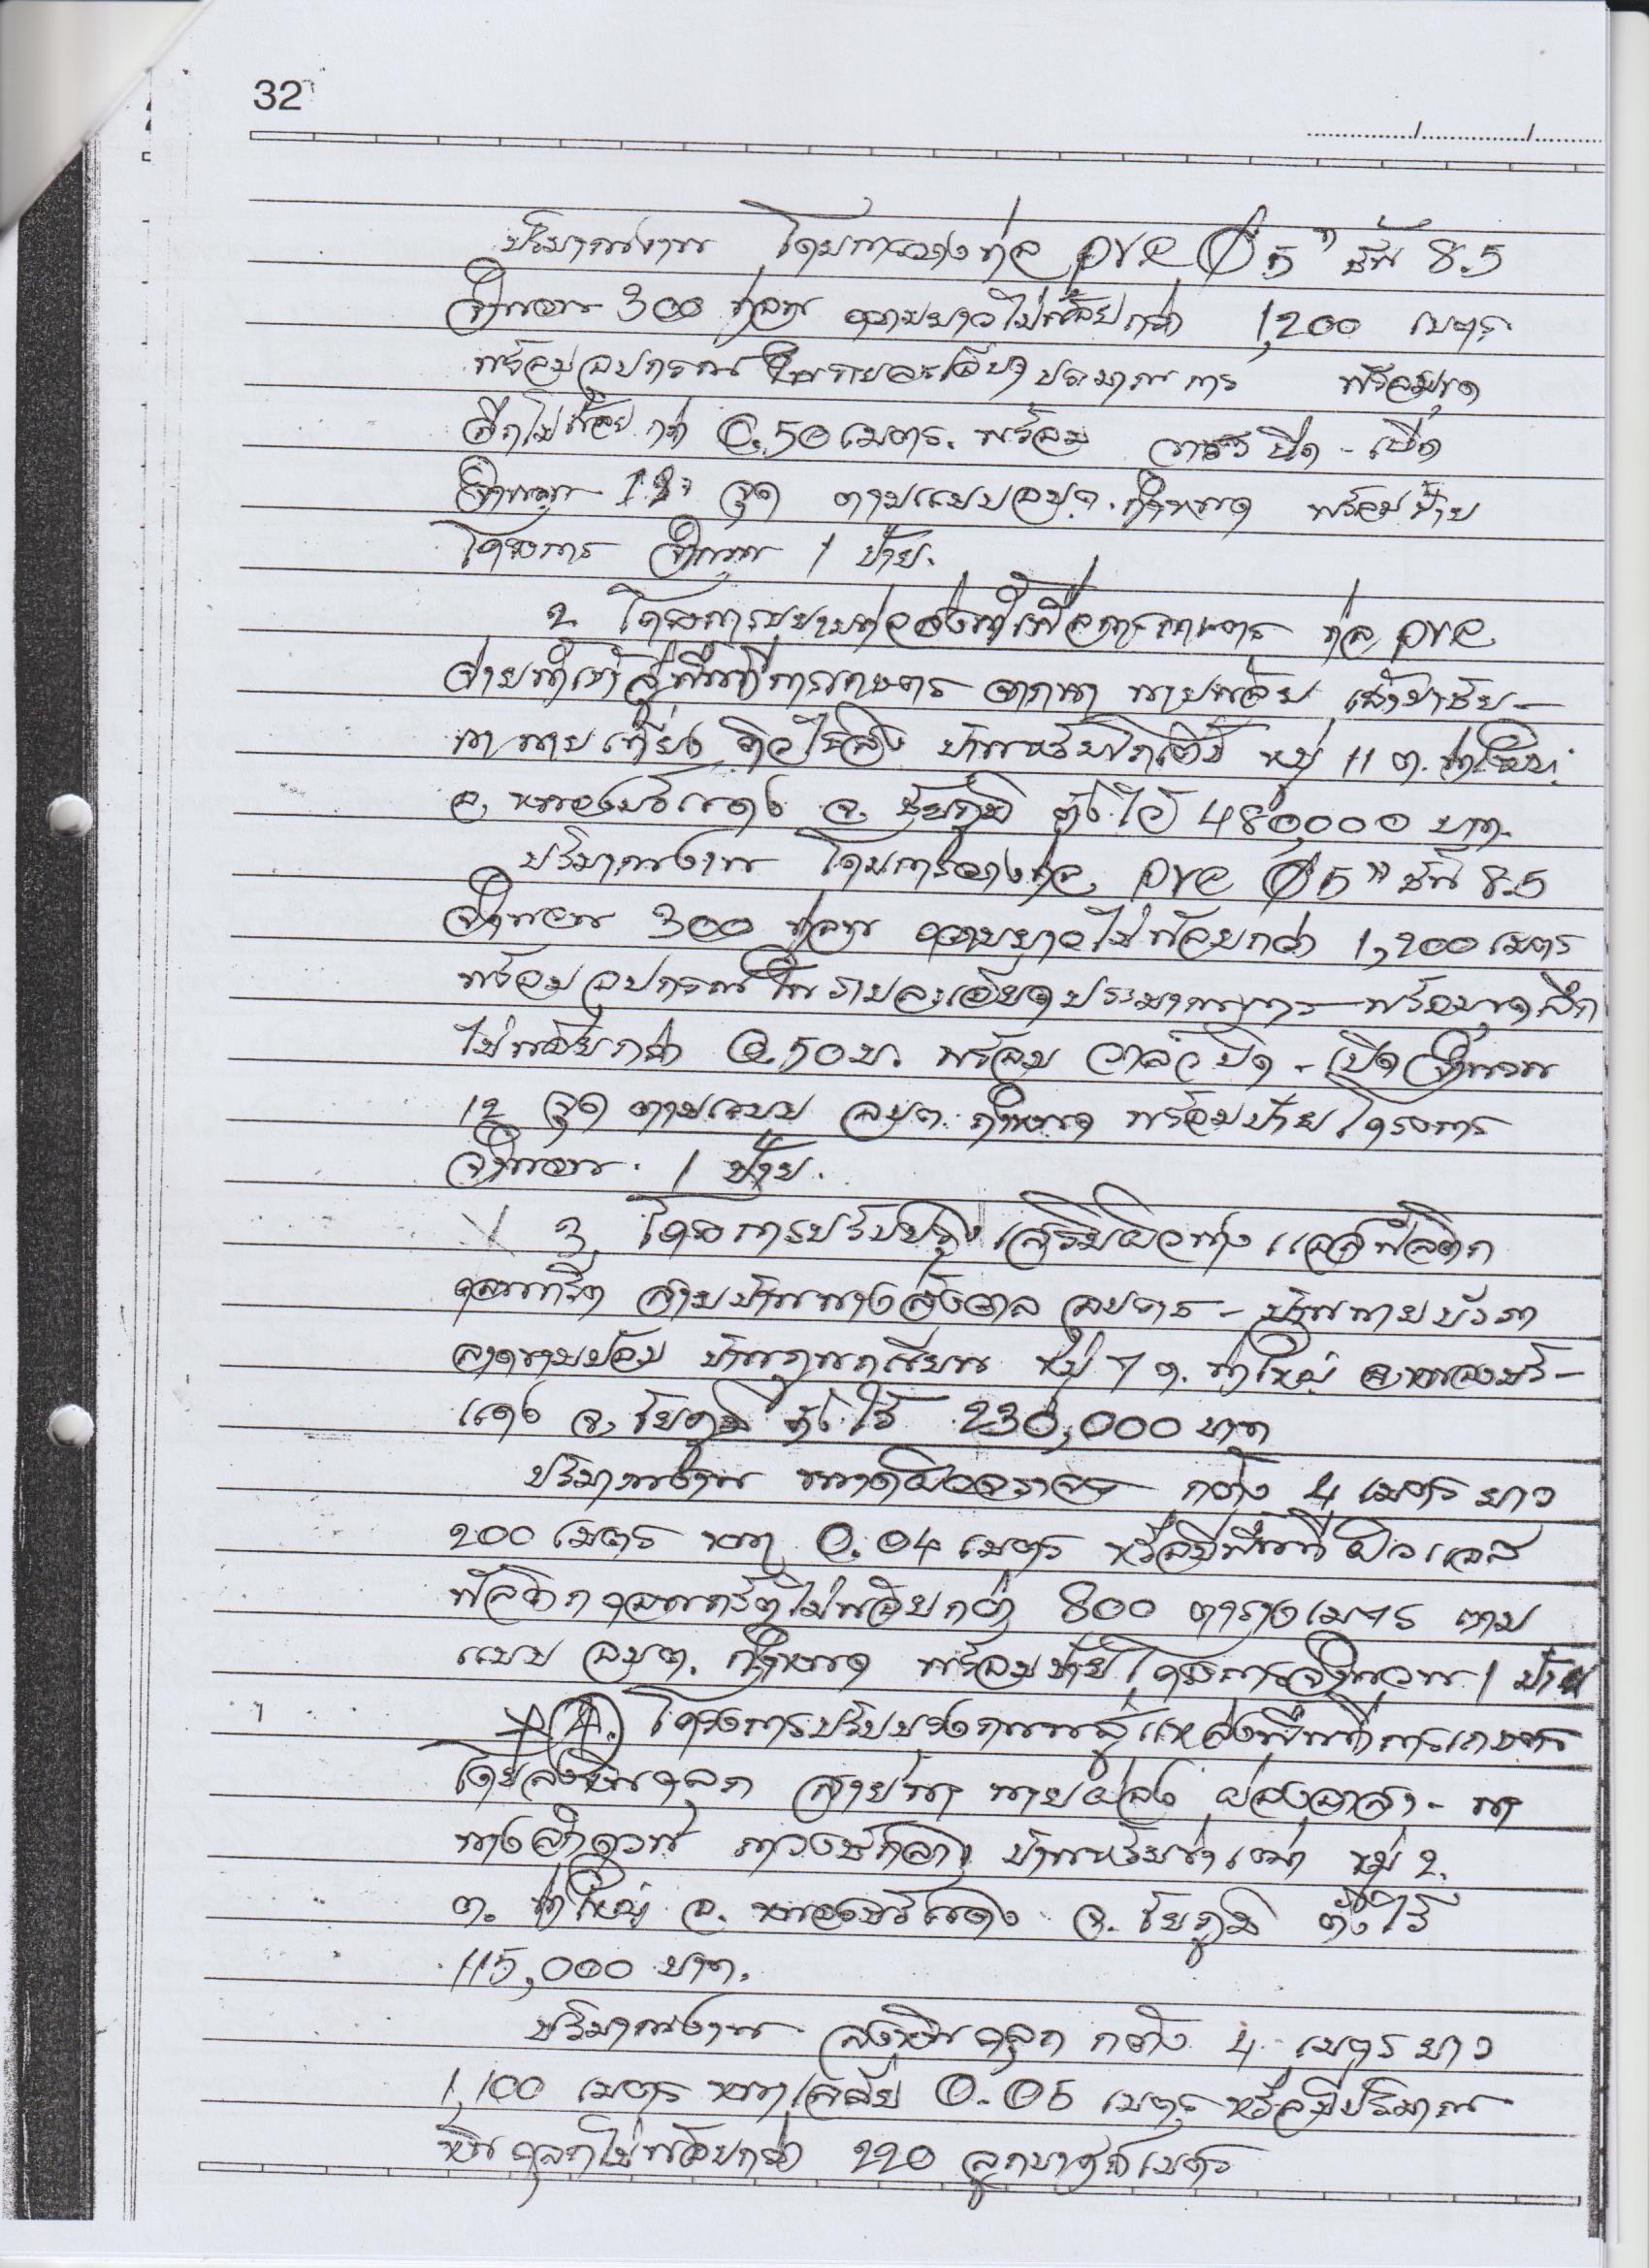 32
ปริมาณงาน โดยการวางท่อ PVC Ø 5" ชั้น 8.5
จำนวน 300 ท่อน ความยาวไม่น้อยกว่า 1,200 เมตร
พร้อมอุปกรณ์ในรายละเอียดประมาณการ พร้อมขุด
ลึกไม่น้อยกว่า 0.50 เมตร. พร้อม วาล์ว ปิด - เปิด
จำนวน จุด ตามแบบ อบต. กำหนด พร้อมป้าย
โครงการ จำนวน 1 ป้าย.
2. โครงการขยายท่อส่งน้ำเพื่อการเกษตร ท่อ PVC
จ่ายน้ำเข้าสู่พื้นที่การเกษตร จากนา นายพลอย
นา นายเที่ยง หมู่ 11 ต. ท่าใหญ่
อ. หนองบัวแดง จ. ชัยภูมิ ตั้งไว้ 480,000 บาท.
ปริมาณงาน โดยการวางท่อ PVC Ø 5" ชั้น 8.5
จำนวน 300 ท่อน ความยาวไม่น้อยกว่า 1,200 เมตร
พร้อมอุปกรณ์ในรายละเอียดประมาณการ พร้อมขุดลึก
ไม่น้อยกว่า 0.50 ม. พร้อม วาล์ว ปิด - เปิด จำนวน
12 จุด ตามแบบ อบต. กำหนด พร้อมป้ายโครงการ
จำนวน 1 ป้าย.
3. โครงการปรับปรุง เสริมผิวทาง แอสฟัลติก
คอนกรีต สายบ้านนางสังวาล - บ้านนายบัวรา
หมู่ 7 ต. ท่าใหญ่ อ. หนองบัว-
แดง จ. ชัยภูมิ ตั้งไว้ 230,000 บาท
ปริมาณงาน ขนาดผิวจราจร กว้าง 4 เมตร ยาว
200 เมตร หนา 0.04 เมตร หรือมีพื้นที่ผิวแอส
ฟัลติกคอนกรีตไม่น้อยกว่า 800 ตารางเมตร ตาม
แบบ อบต. กำหนด พร้อมป้ายโครงการจำนวน 1 ป้าย
4. โครงการปรับปรุงถนนสู่แหล่งพื้นที่การเกษตร
โดยลงหินคลุก สายนา นายผ่อง ผ่องอาสา - นา
นางลำดวน บ้านหม่ 2.
ต. ท่าใหญ่ อ. หนองบัวแดง จ. ชัยภูมิ ตั้งไว้
115,000 บาท.
ปริมาณงาน ลงหินคลุก กว้าง 4 เมตร ยาว
1,100 เมตร หนาเฉลี่ย 0.05 เมตร หรือมีปริมาณ
หินคลุกไม่น้อยกว่า 220 ลูกบาศก์เมตร